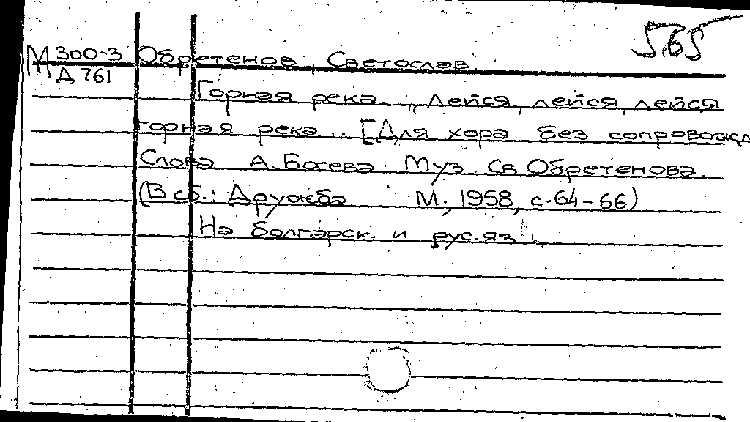 565
М 300-3 Обретенов, Светослав.
Д 761
Горная река. „Лейся, лейся, лейся
горная река... [Для хора без сопровожд
Слова А. Босева Муз. Св. Обретенова.
(В сб.: Дружба М., 1958, с. 64-66)
На болгарск. и рус. яз.